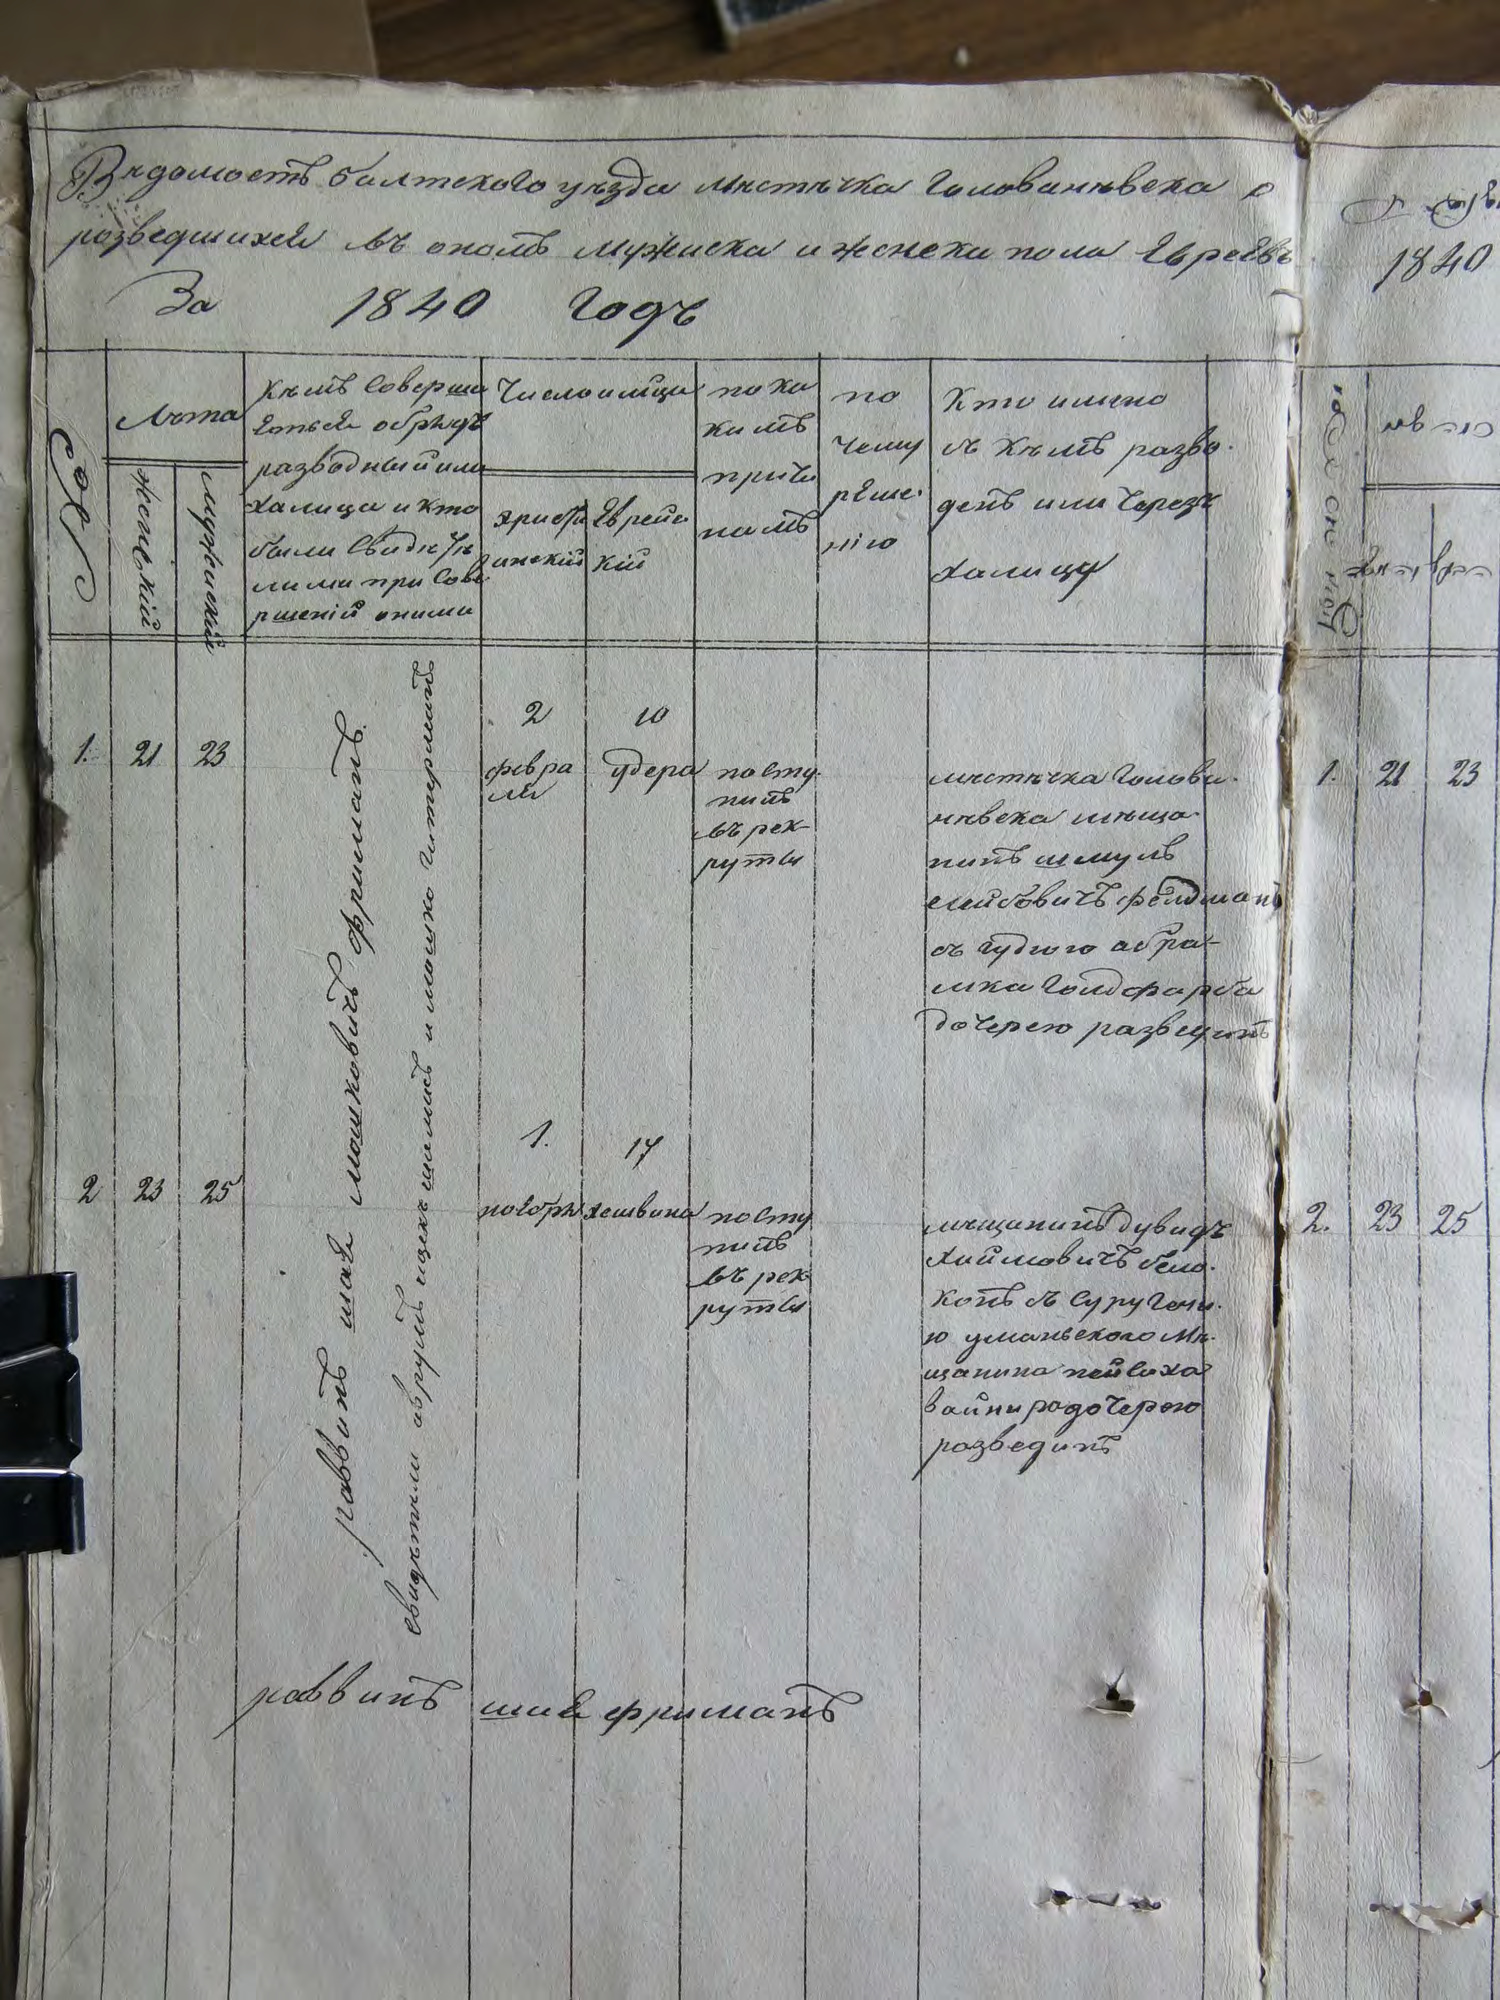 Вѣдомость балтского уѣзда мѣстѣчка Голованѣвска о
розведшихся въ ономъ мужиска и женска пола Евреевъ
За 1840 годъ
Лѣта
женьскій
мужискій
Кѣмъ соверша
еться обрядъ
разводный или
халица и кто
были свидѣтѣ
лими при сове
ршеній оними
Число и мцъ
христи
янскій
Еврейс
кій
по ка
кимъ
причи
намъ
по
чему
реше-
нію
Кто имено
съ кѣмъ разво-
денъ или черезъ
халицу
1. 21 23
раввинъ шая мошковичъ фриманъ
2
февра
ля
10
удера
посту-
пилъ
въ рек-
руты
мѣстѣчка Голова-
нѣвска мѣща
нинъ шмуль
лейбовичъ фелдманъ
съ
абра-
мка Голдфарба
дочерею развединъ
2 23 25
1.
ноября
17
хешвина
посту
пилъ
въ рек
руты
мѣщининъ дувидъ
хаймовичъ бело-
конь съ суру
ю уманьского мѣ-
щанина пейсаха
вайнира дочерою
розвединъ
раввинъ шая фриманъ
1840
1. 21 23
2. 23 25